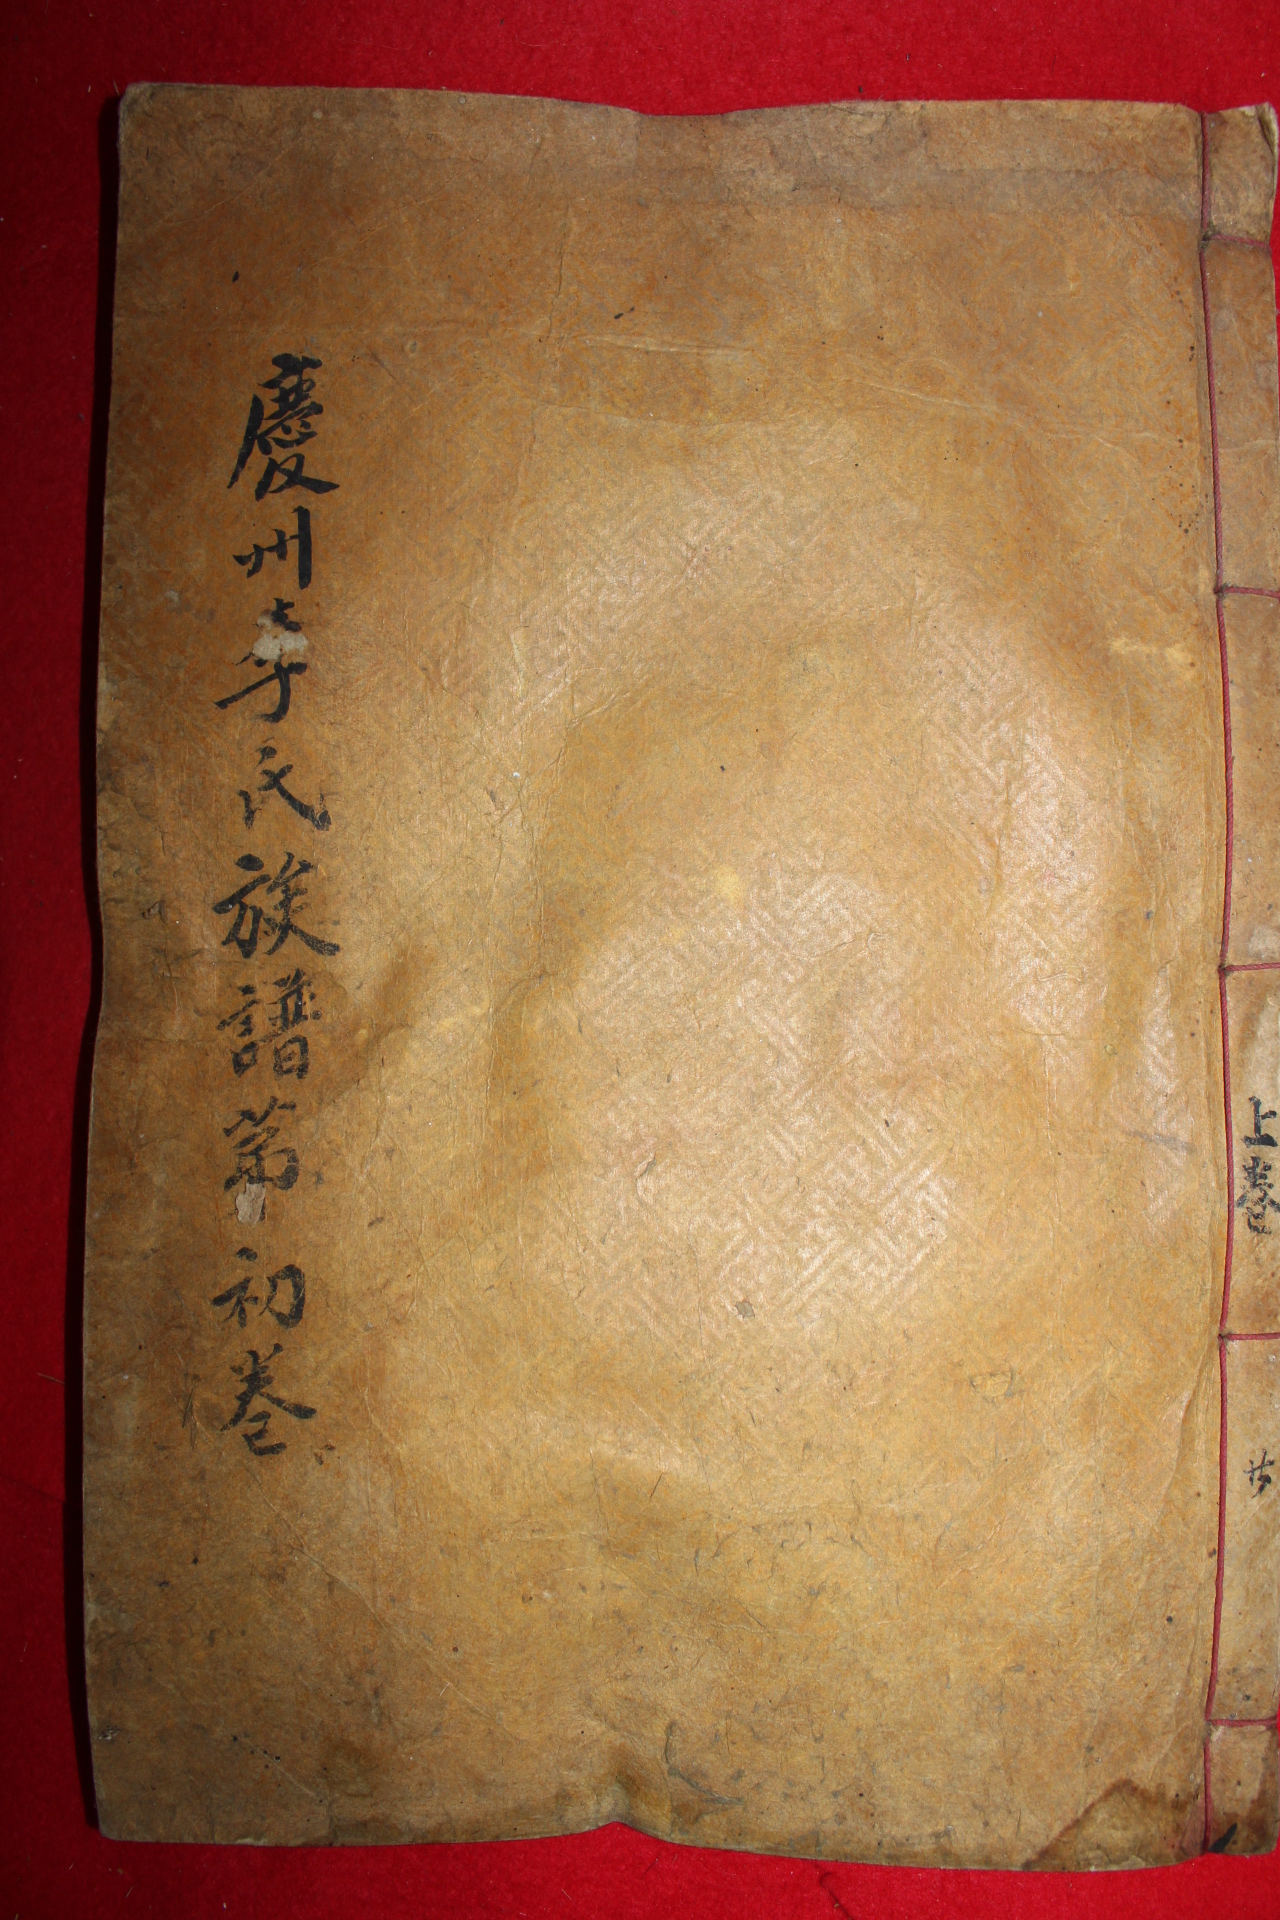 慶州李氏族譜第初卷
上卷